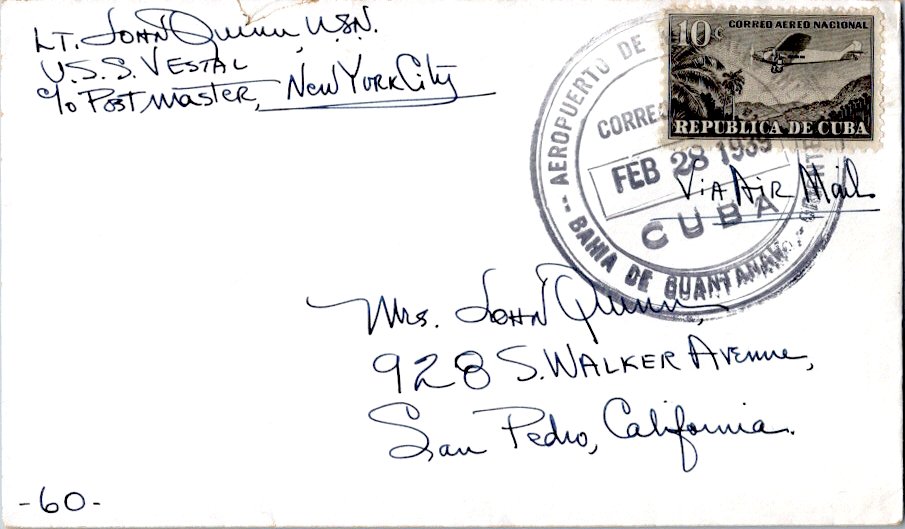 LT. JOHN Quinn, USN.
U.S.S. VESTAL
c/o POSTMASTER, New York City
10c CORREO AEREO NACIONAL
REPUBLICA DE CUBA
AEROPUERTO DE
CORREO
FEB 28 1939
CUBA
-- BAHIA DE GUANTANAMO --
VIA AIR Mail
Mrs. JOHN Quinn,
928 S. WALKER Avenue,
San Pedro, California.
-60-